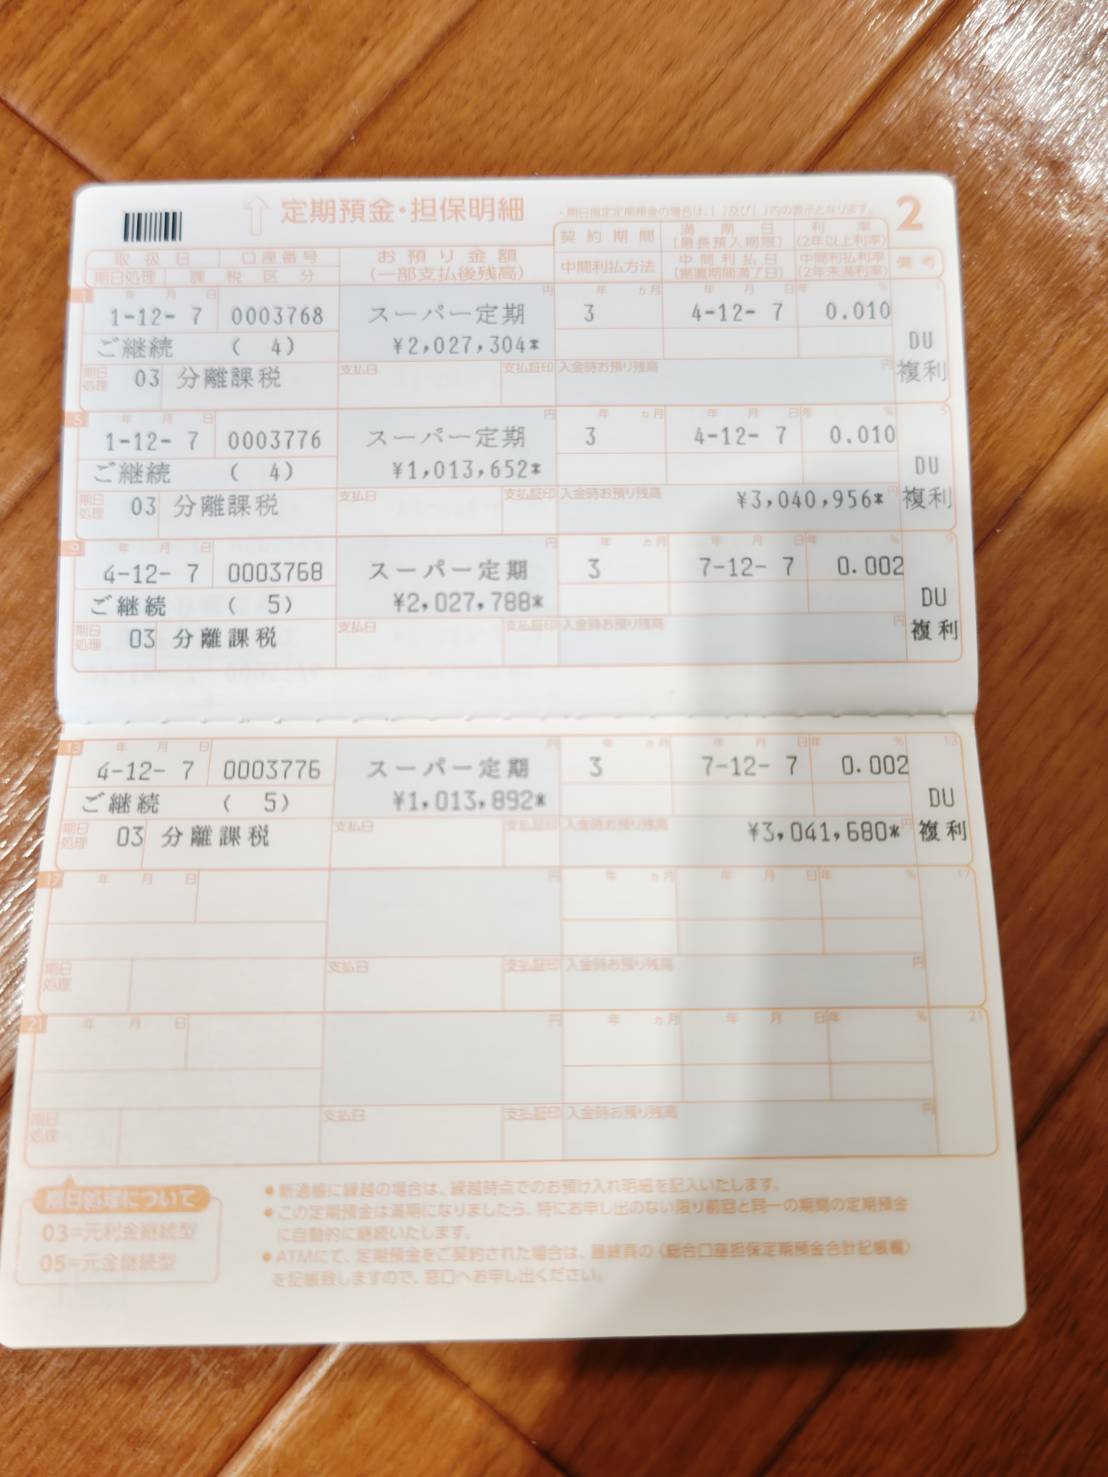 定期預金・担保明細
・期日指定定期預金の場合は、( )及び( )内の表示となります。
2
取扱日 口座番号 お預り金額 契約期間 満期日 利率 備考
(一部支払後残高) (最長預入期限) (2年以上利率)
期日処理 課税区分 中間利払方法 中間利払日 中間利払利率
(据置期間満了日) (2年未満利率)
1 年 月 日 円 年 ヵ月 年 月 日 年 %
1-12- 7 0003768 スーパー定期 3 4-12- 7 0.010
ご継続 ( 4) ¥2,027,304* DU
期日処理 03 分離課税 支払日 支払証印 入金時お預り残高 円 複利
5 年 月 日 円 年 ヵ月 年 月 日 年 % 5
1-12- 7 0003776 スーパー定期 3 4-12- 7 0.010
ご継続 ( 4) ¥1,013,652* DU
期日処理 03 分離課税 支払日 支払証印 入金時お預り残高 ¥3,040,956* 円 複利
9 年 月 日 円 年 ヵ月 年 月 日 年 % 9
4-12- 7 0003768 スーパー定期 3 7-12- 7 0.002
ご継続 ( 5) ¥2,027,788* DU
期日処理 03 分離課税 支払日 支払証印 入金時お預り残高 円 複利
13 年 月 日 円 年 ヵ月 年 月 日 年 % 13
4-12- 7 0003776 スーパー定期 3 7-12- 7 0.002
ご継続 ( 5) ¥1,013,892* DU
期日処理 03 分離課税 支払日 支払証印 入金時お預り残高 ¥3,041,680* 円 複利
17 年 月 日 円 年 ヵ月 年 月 日 年 % 17
期日処理 支払日 支払証印 入金時お預り残高 円
21 年 月 日 円 年 ヵ月 年 月 日 年 % 21
期日処理 支払日 支払証印 入金時お預り残高 円
期日処理について
03=元利金継続型
05=元金継続型
●新通帳に繰越の場合は、繰越時点でのお預け入れ明細を記入いたします。
●この定期預金は満期になりましたら、特にお申し出のない限り前回と同一の期間の定期預金
に自動的に継続いたします。
●ATMにて、定期預金をご契約された場合は、最終頁の〈総合口座担保定期預金合計記帳欄〉
を記帳致しますので、窓口へお申し出ください。